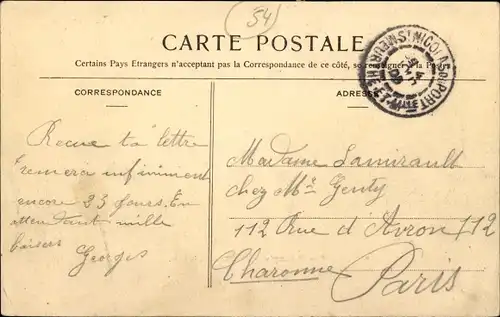 54
CARTE POSTALE
Certains Pays Etrangers n'acceptant pas la Correspondance de ce côté, se renseigner à la Poste
CORRESPONDANCE
ADRESSE
ST NICOLAS DU PORT
MEURTHE-ET-MLLE
09
Recue ta lettre
infiniment
encore 23 Jours. En
attendant mille
baisers
Georges
Madame Lamirault
chez Mr Genty
112 Rue d'Avron 112
Charonne Paris